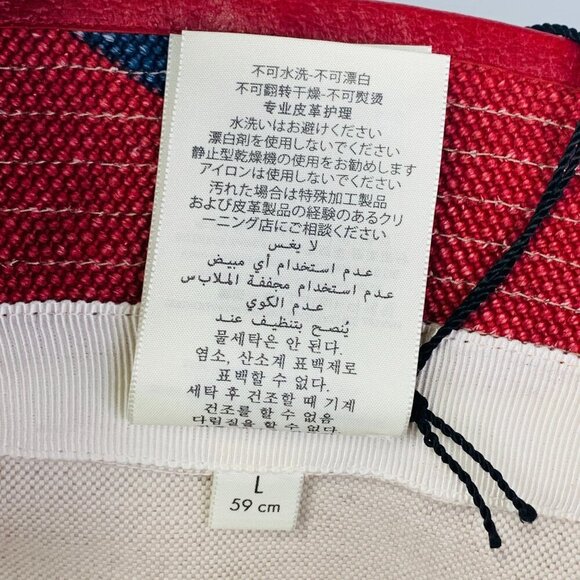 不可水洗-不可漂白
不可翻转干燥-不可熨烫
专业皮革护理
水洗いはお避けください
漂白剤を使用しないでください
静止型乾燥機の使用をお勧めします
アイロンは使用しないでください
汚れた場合は特殊加工製品
および皮革製品の経験のあるクリ
ーニング店にご相談ください
لا يغس
عدم استخدام أي مبيض
عدم استخدام مجففة الملابس
عدم الكوي
يُنصح بتنظيف عند
물세탁은 안 된다.
염소, 산소계 표백제로
표백할 수 없다.
세탁 후 건조할 때 기계
건조를 할 수 없음
다림질을 할 수 없다.
L
59 cm